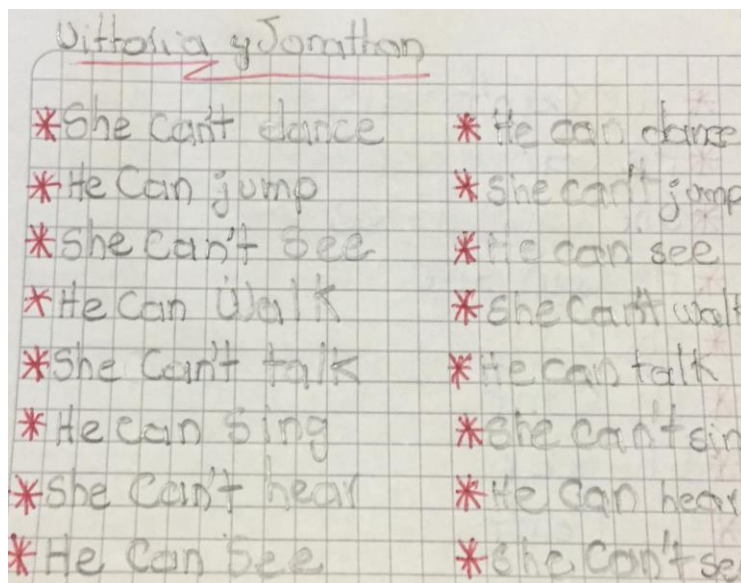 Vittoria y Jonathan
*She can't dance
*He Can jump
*She can't see
*He Can Walk
*She Can't talk
*He can Sing
*She Can't hear
*He Can See
*He can dance
*she can't jump
*He can see
*She Can't walk
*He can talk
*She can't sin
*He Can hear
*She Can't se